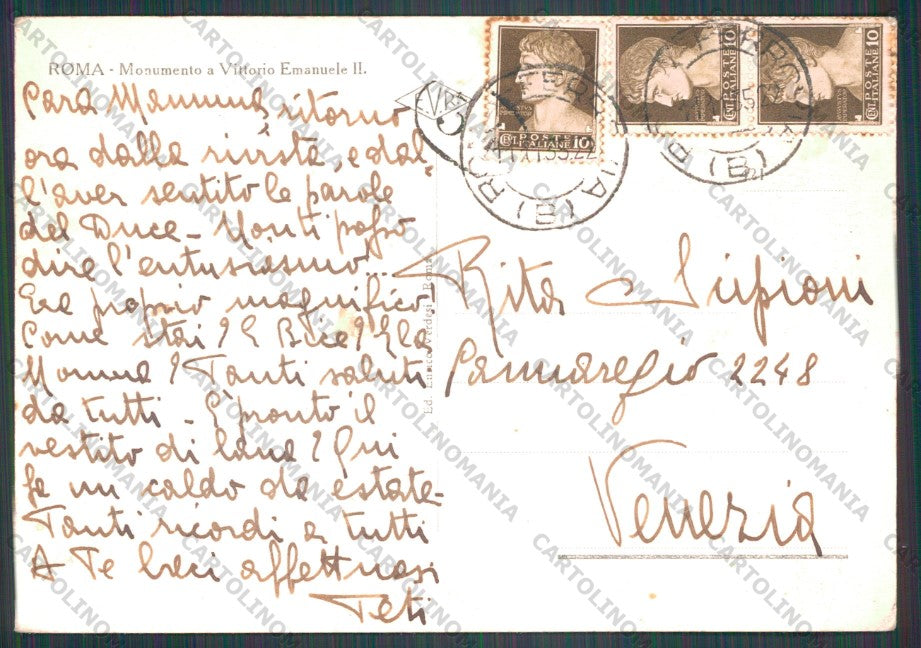 ROMA - Monumento a Vittorio Emanuele II.
Cara Mammina ritorno
ora dalla rivista, e dal
l'aver sentito le parole
del Duce - Non ti posso
dire l'entusiasmo...
Era proprio magnifico -
Come stai? E Bice? E la
Nonna? Tanti saluti
da tutti - E' pronto il
vestito di lana? Qui
fa un caldo da estate -
Tanti ricordi a tutti
A Te baci affettuosi
Teti
Rita Scipioni
Cannaregio 2248
Venezia
POSTE
ITALIANE 10
CENT.
POSTE
ITALIANE 10
CENT.
POSTE
ITALIANE 10
CENT.
(B)
(B)
CARTOLINOMANIA